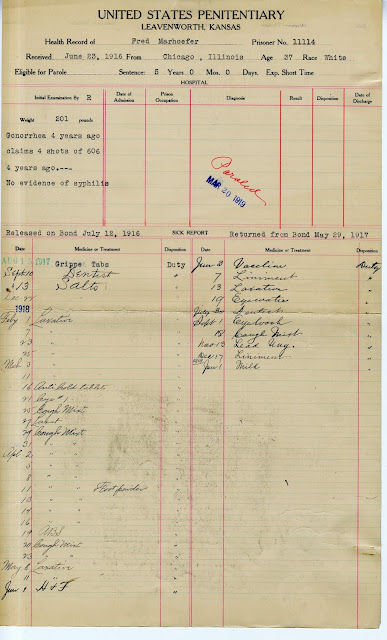 UNITED STATES PENITENTIARY
LEAVENWORTH, KANSAS
Health Record of Fred Marhoefer Prisoner No. 11114
Received June 23, 1916 From Chicago, Illinois Age 37 Race White
Eligible for Parole Sentence: 5 Years 0 Mos. 0 Days. Exp. Short Time
HOSPITAL
Initial Examination By R Date of Admission Prison Occupation Diagnosis Result Disposition Date of Discharge
Weight 201 pounds
Gonorrhea 4 years ago
claims 4 shots of 606
4 years ago.---
No evidence of syphilis
Paroled
MAR 20 1919
Released on Bond July 12, 1916 SICK REPORT Returned from Bond May 29, 1917
Date Medicine or Treatment Disposition Date Medicine or Treatment Disposition
AUG 1 1917 Grippe Tabs Duty Jun 2 Vaseline Duty
Sept 10 Dentist " 7 Liniment
" 13 Salts " 13 Laxative
Dec 19 Eyewater
1918 July Dentist
Feby Laxative Sept 1 Eyewash
" 18 Cough Mist
23 " " Nov 13 Lead Ung.
25 " " Dec 17 Liniment
Mch 3 " " Jan 1 Mild
" "
16 Anti Cold tablet
21
25 Cough Mist
27
29 Cough Mist
31 " "
Apl 2 " "
" "
" "
11 " " Foot powder
" "
14 " "
16 " "
19
20 Cough Mist
23 " "
May 8 Laxative
11 " "
Jun 1 H & F